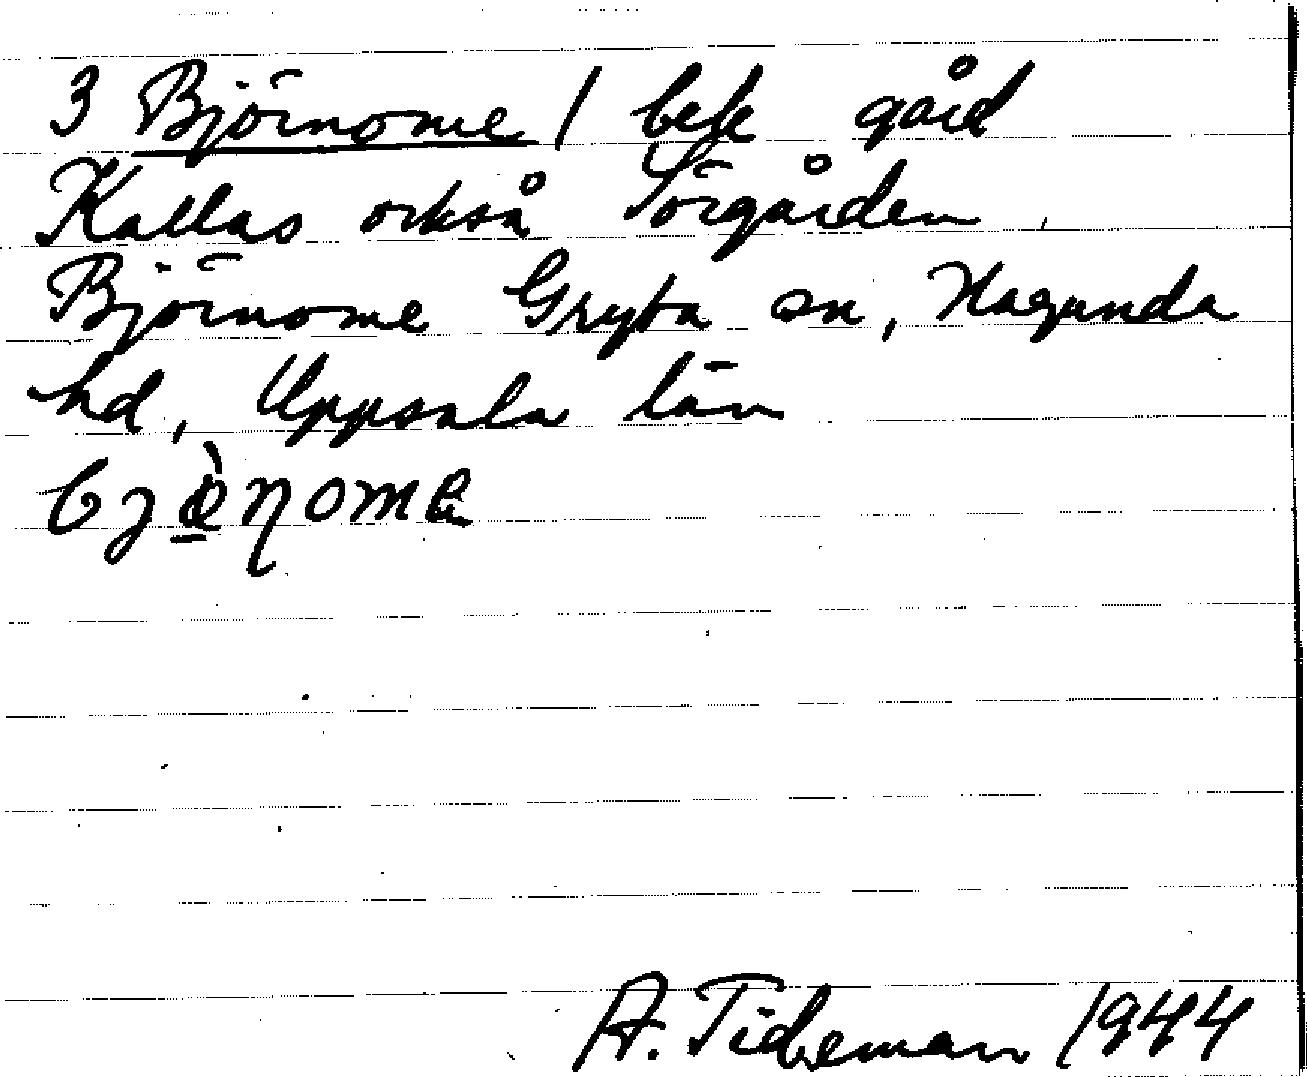 3 Björnome / bek gård
Kallas också Sörgården.
Björnome Gryta sn, Hagunda
hd, Uppsala län
A. Tideman 1944